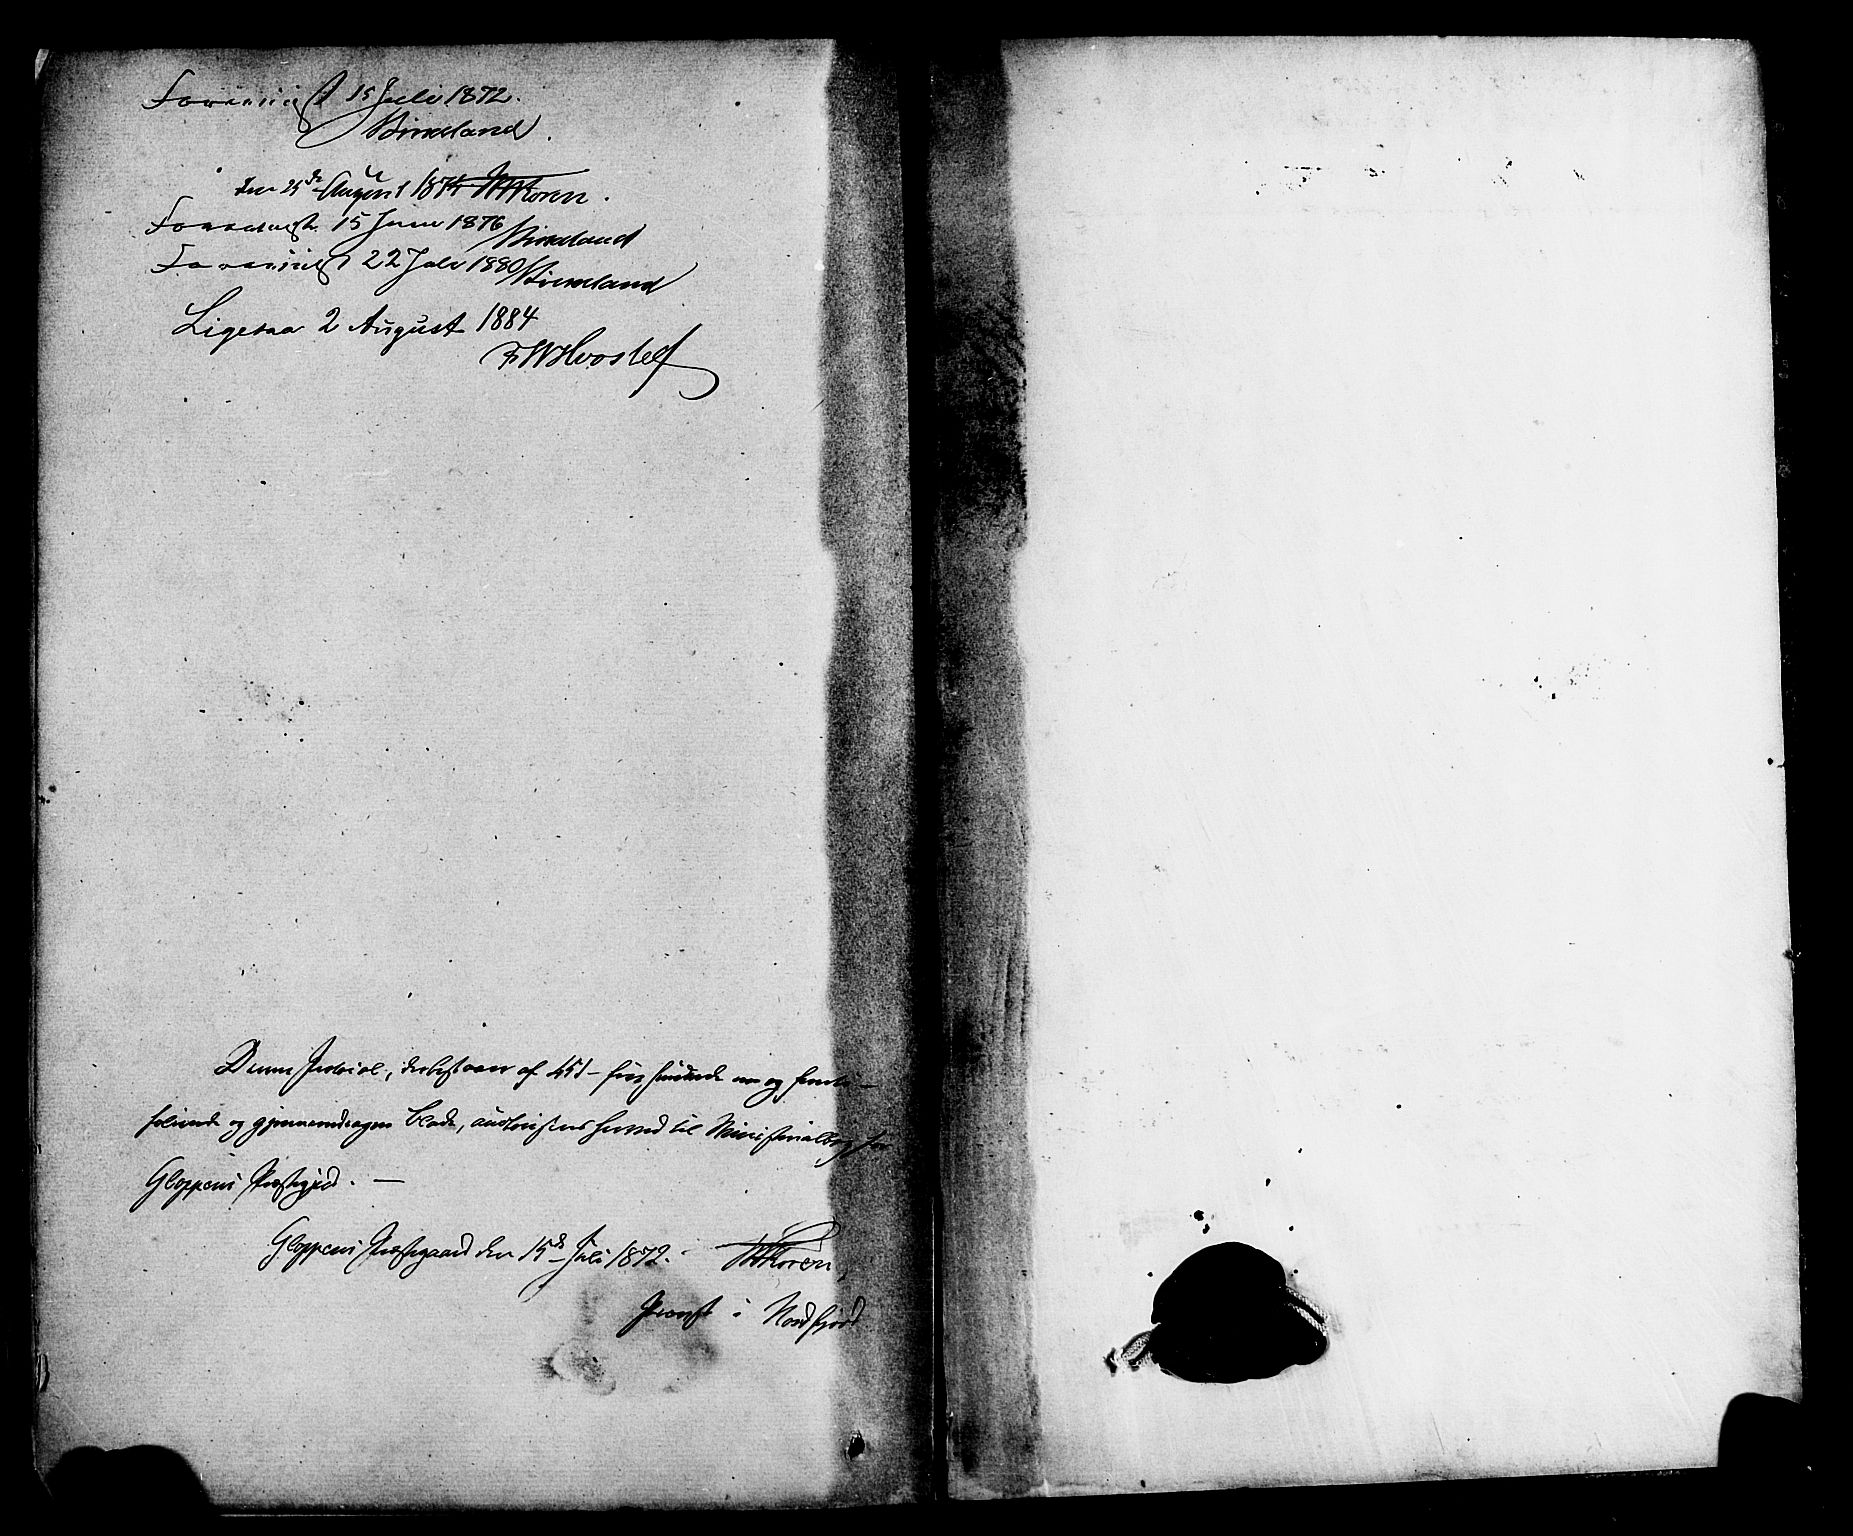 Foreviist 15 Juli 1872.
Birkeland.
den 25de August 1874 WKoren.
Foreviist 15 Juni 1876 Birkeland
Foreviist 22 Juli 1880 Birkeland
Ligesaa 2 August 1884
FWHvoslef
Denne Protocol, der bestaaer af 451 – fire hundrede en og femti –
folierede og gjennemdragne blade, authoriseres herved til Ministerialbog for
Gloppens Præstegjeld. —
Gloppens Præstegaard den 15de Juli 1872. WKoren,
Provst i Nordfjord